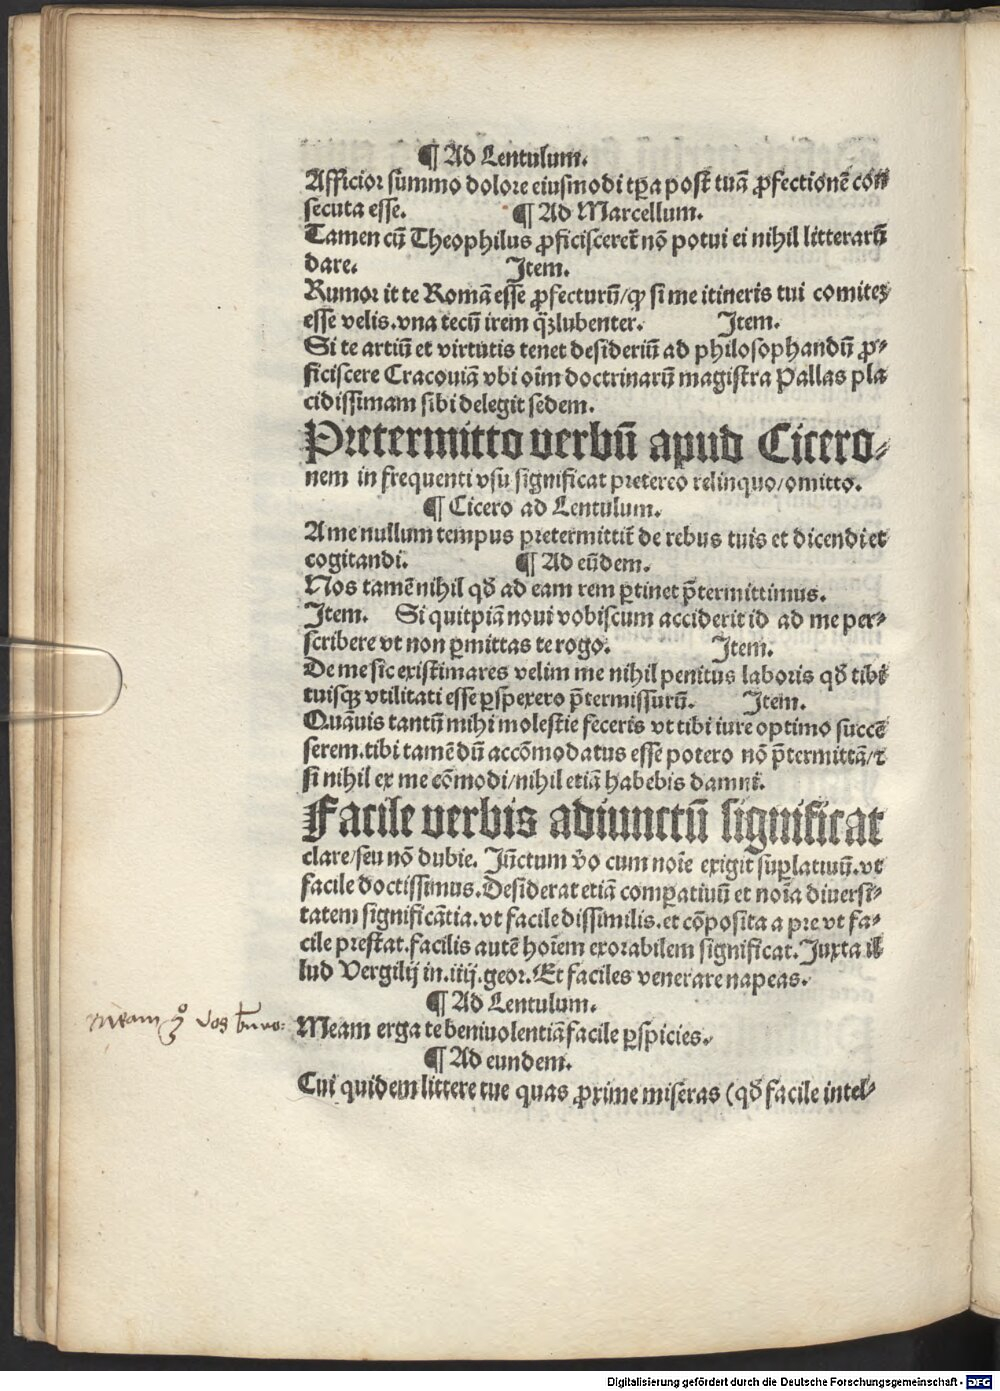 ¶ Ad Lentulum.
Afficior summo dolore eiusmodi tp̄a post tuā ꝓfectionē con
secuta esse. ¶ Ad Marcellum.
Tamen cū Theophilus ꝓficisceret̄ nō potui ei nihil litterarū
dare. Item.
Rumor it te Romā esse ꝓfecturū/ꝙ si me itineris tui comitē
esse velis.vna tecū irem q̄ꝫlubenter. Item.
Si te artiū et virtutis tenet desideriū ad philosophandū ꝓ-
ficiscere Cracouiā vbi oīm doctrinarū magistra Pallas pla
cidissimam sibi delegit sedem.
Pretermitto verbū apud Cicero-
nem in frequenti vsu significat pretereo relinquo/omitto.
¶ Cicero ad Lentulum.
A me nullum tempus pretermittit̄ de rebus tuis et dicendi et
cogitandi. ¶ Ad eūdem.
Nos tamē nihil qđ ad eam rem ꝑtinet p̄termittimus.
Item. Si quitpiā noui vobiscum acciderit id ad me per-
scribere vt non ꝑmittas te rogo. Item.
De me sic existimares velim me nihil penitus laboris qđ tibi
tuisqꝫ vtilitati esse ꝑspexero p̄termissurū. Item.
Quāuis tantū mihi molestie feceris vt tibi iure optimo succē
serem.tibi tamē dū accōmodatus esse potero nō p̄termittā/⁊
si nihil ex me cōmodi/nihil etiā habebis damni.
Facile verbis adiunctū significat
clare/seu nō dubie. Iūctum v̄o cum noīe exigit suꝑlatiuū.vt
facile doctissimus.Desiderat etiā comꝑatiuū et noīa diuersi-
tatem significātia.vt facile dissimilis.et cōposita a pre vt fa-
cile prestat.facilis autē hoīem exorabilem significat.Iuxta il
lud Vergilij in.iiij.geor.Et faciles venerare napeas.
¶ Ad Lentulum.
Meam erga te beniuolentiā facile ꝑspicies.
¶ Ad eundem.
Cui quidem littere tue quas ꝓxime miseras (qđ facile intel-
Meam
Digitalisierung gefördert durch die Deutsche Forschungsgemeinschaft - DFG